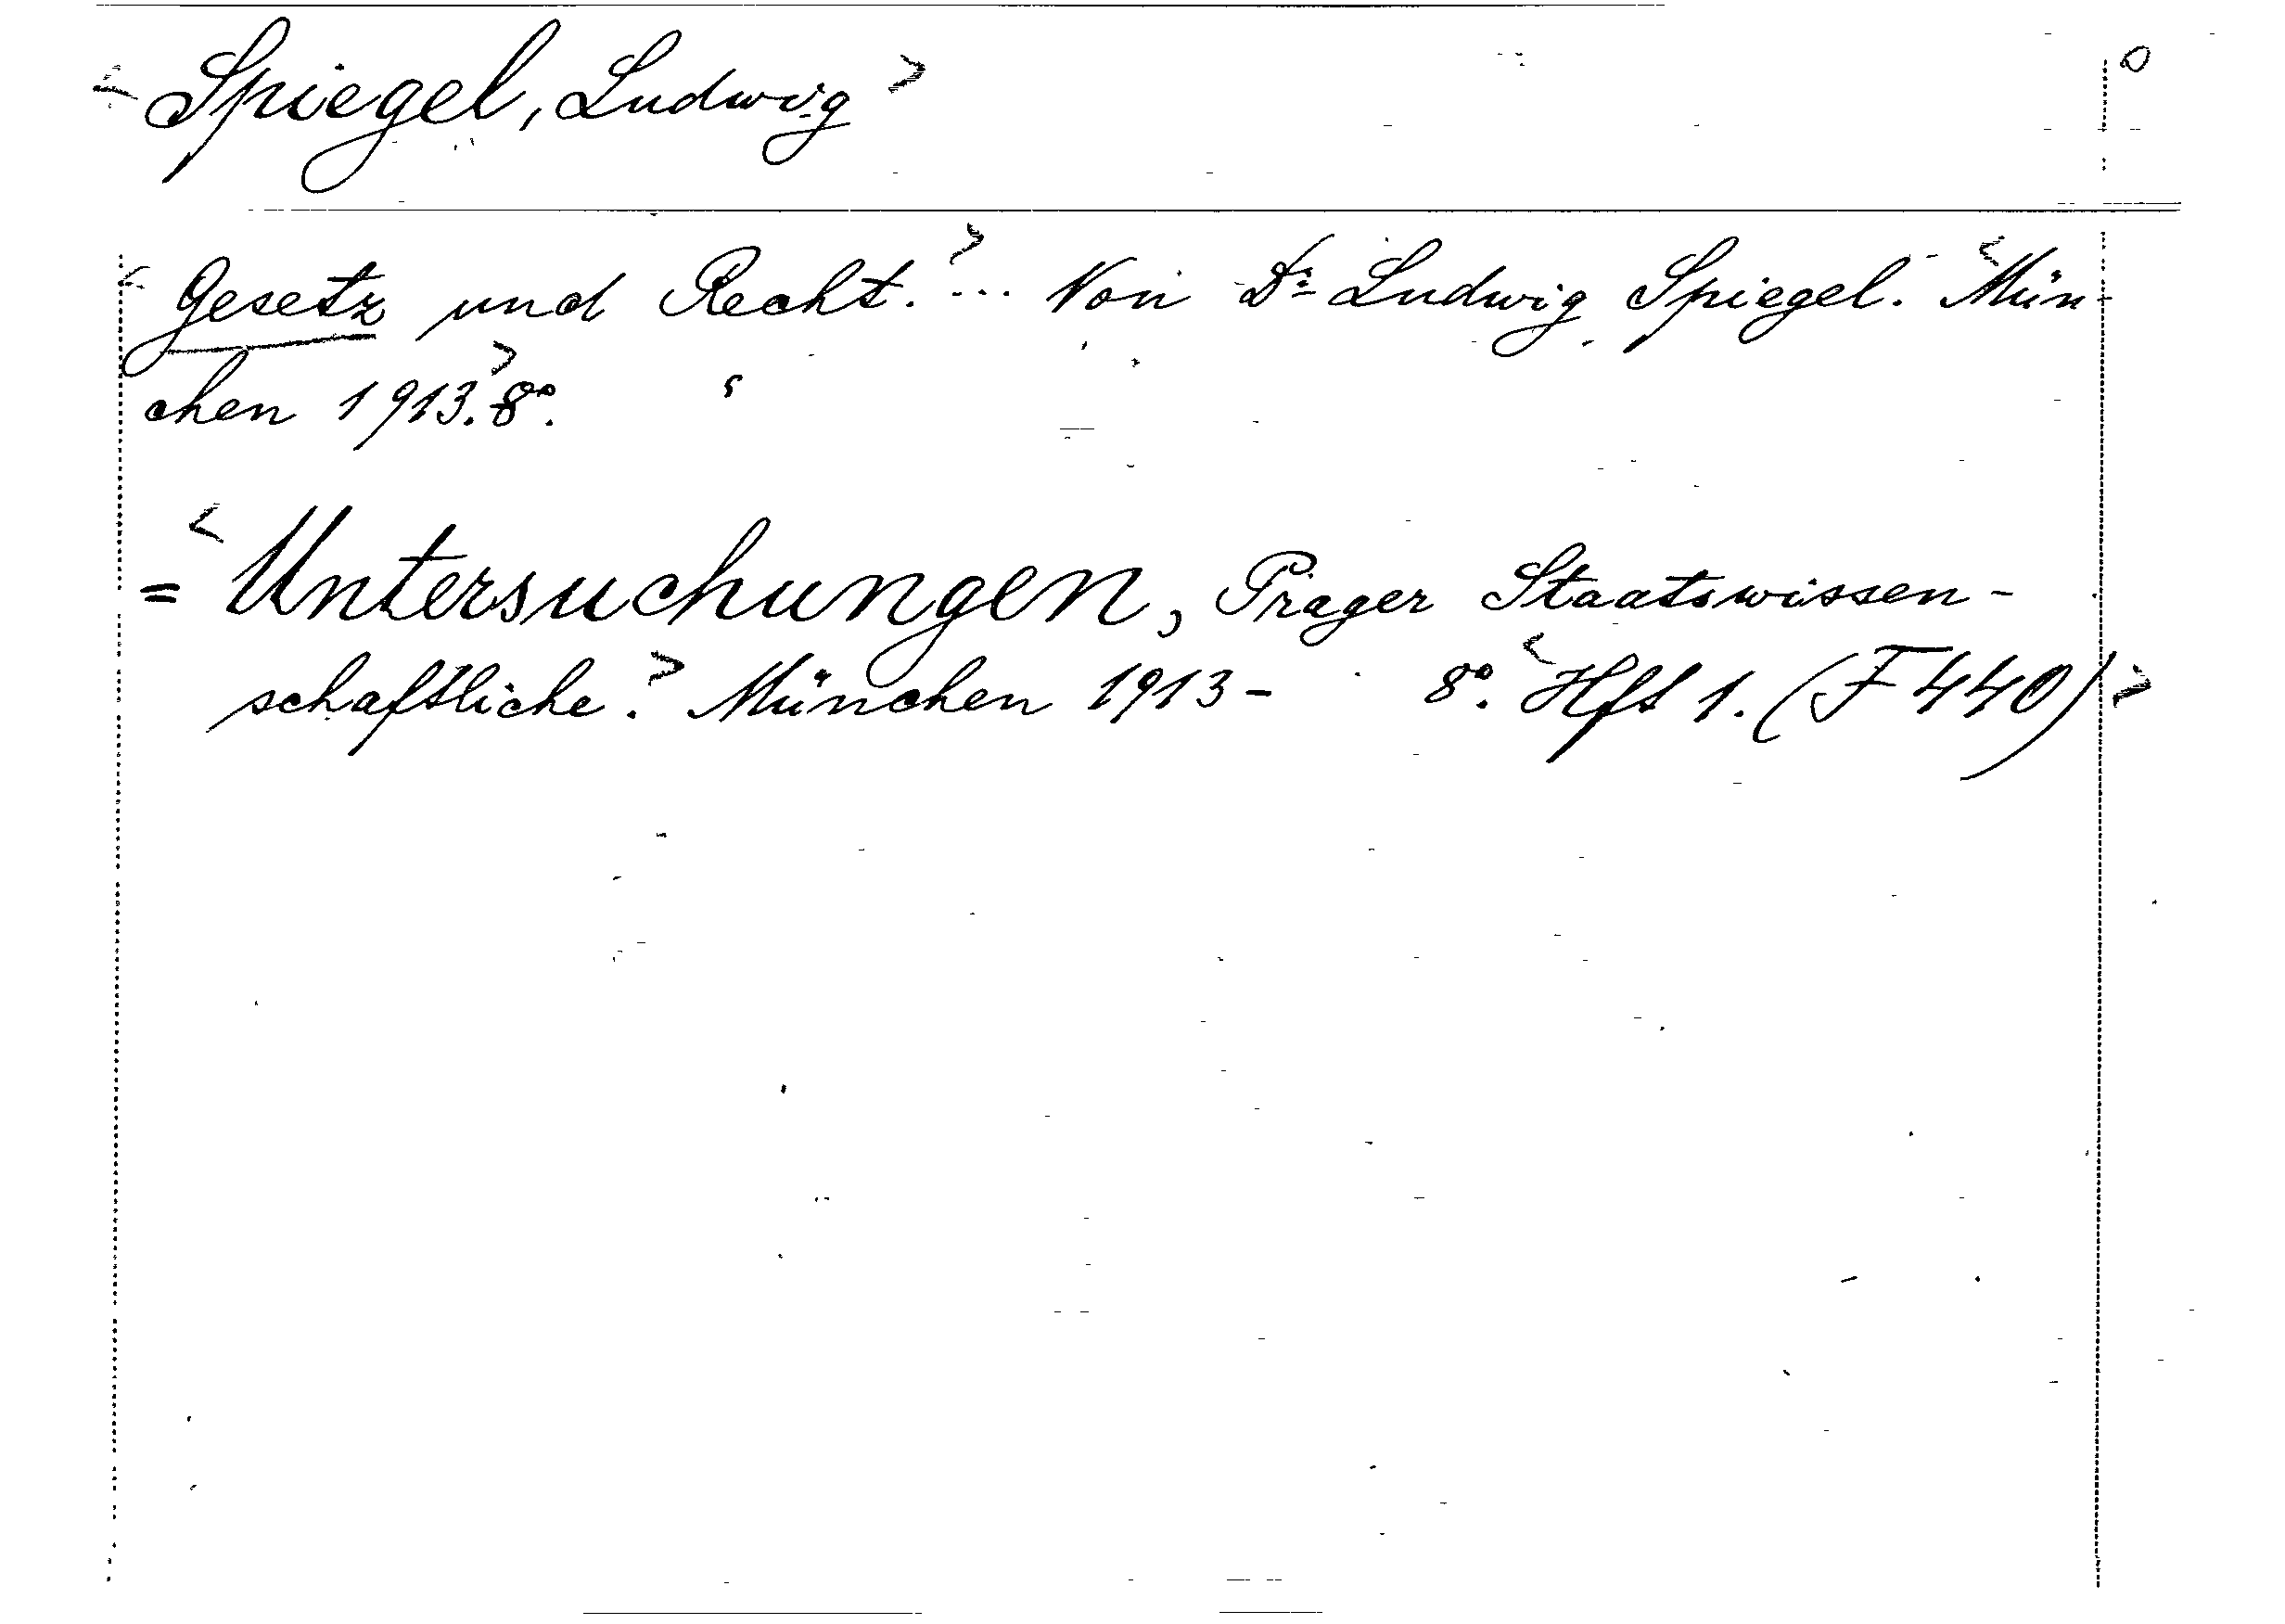 <Spiegel, Ludwig> 0
<Gesetz und Recht.> ... Von Dr Ludwig Spiegel. <Mün-
chen 1913.> 8°.
= <Untersuchungen, Prager Staatswissen-
schaftliche.> München 1913- 8°. <Hft 1. (F 440)>